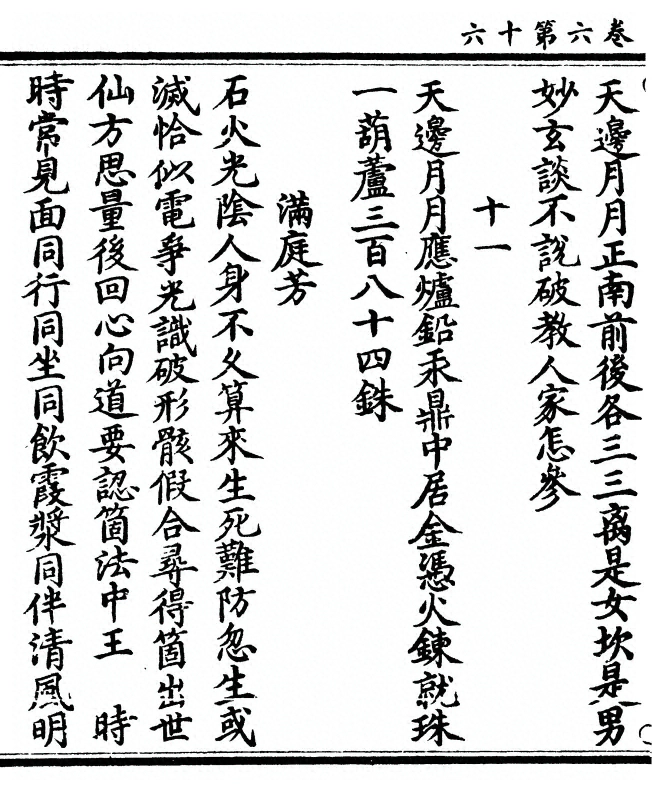 卷六第十六
天邊月月正南前後各三三离是女坎是男
妙玄談不說破教人家怎參
十一
天邊月月應爐鉛汞鼎中居金憑火鍊就珠
一葫蘆三百八十四銖
滿庭芳
石火光陰人身不久算來生死難防忽生或
滅恰似電爭光識破形骸假合尋得箇出世
仙方思量後回心向道要認箇法中王　時
時常見面同行同坐同飲霞漿同伴清風明